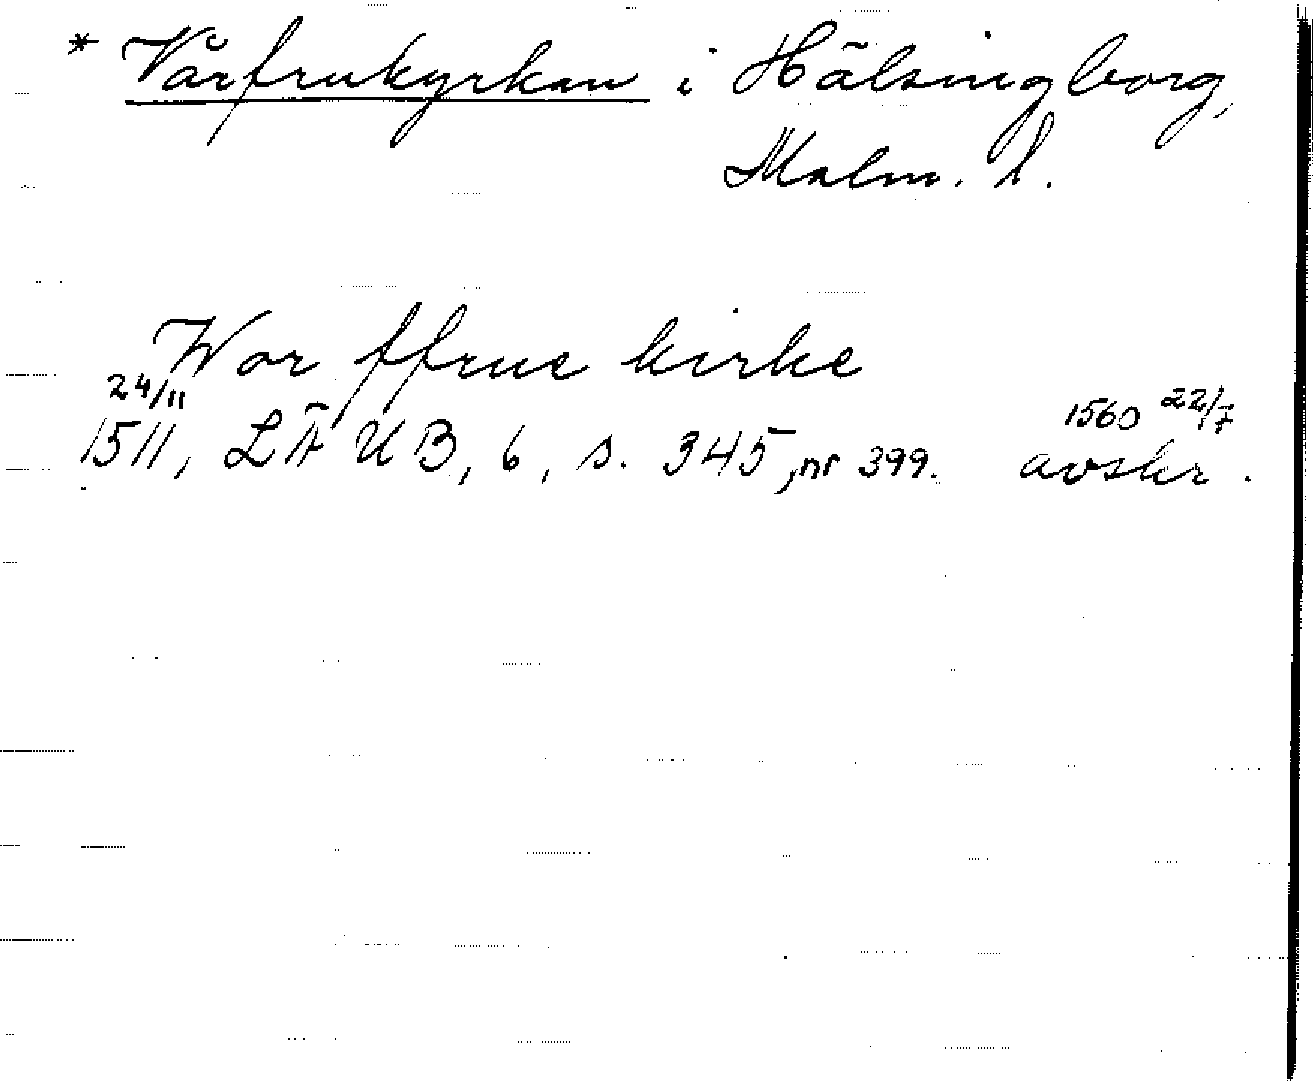 * Vårfrukyrkan i Hälsingborg,
Malm. l.
Wor ffrue kirke
24/11
1560 22/7
1511, LÄUB, 6, s. 345, nr 399. avskr.